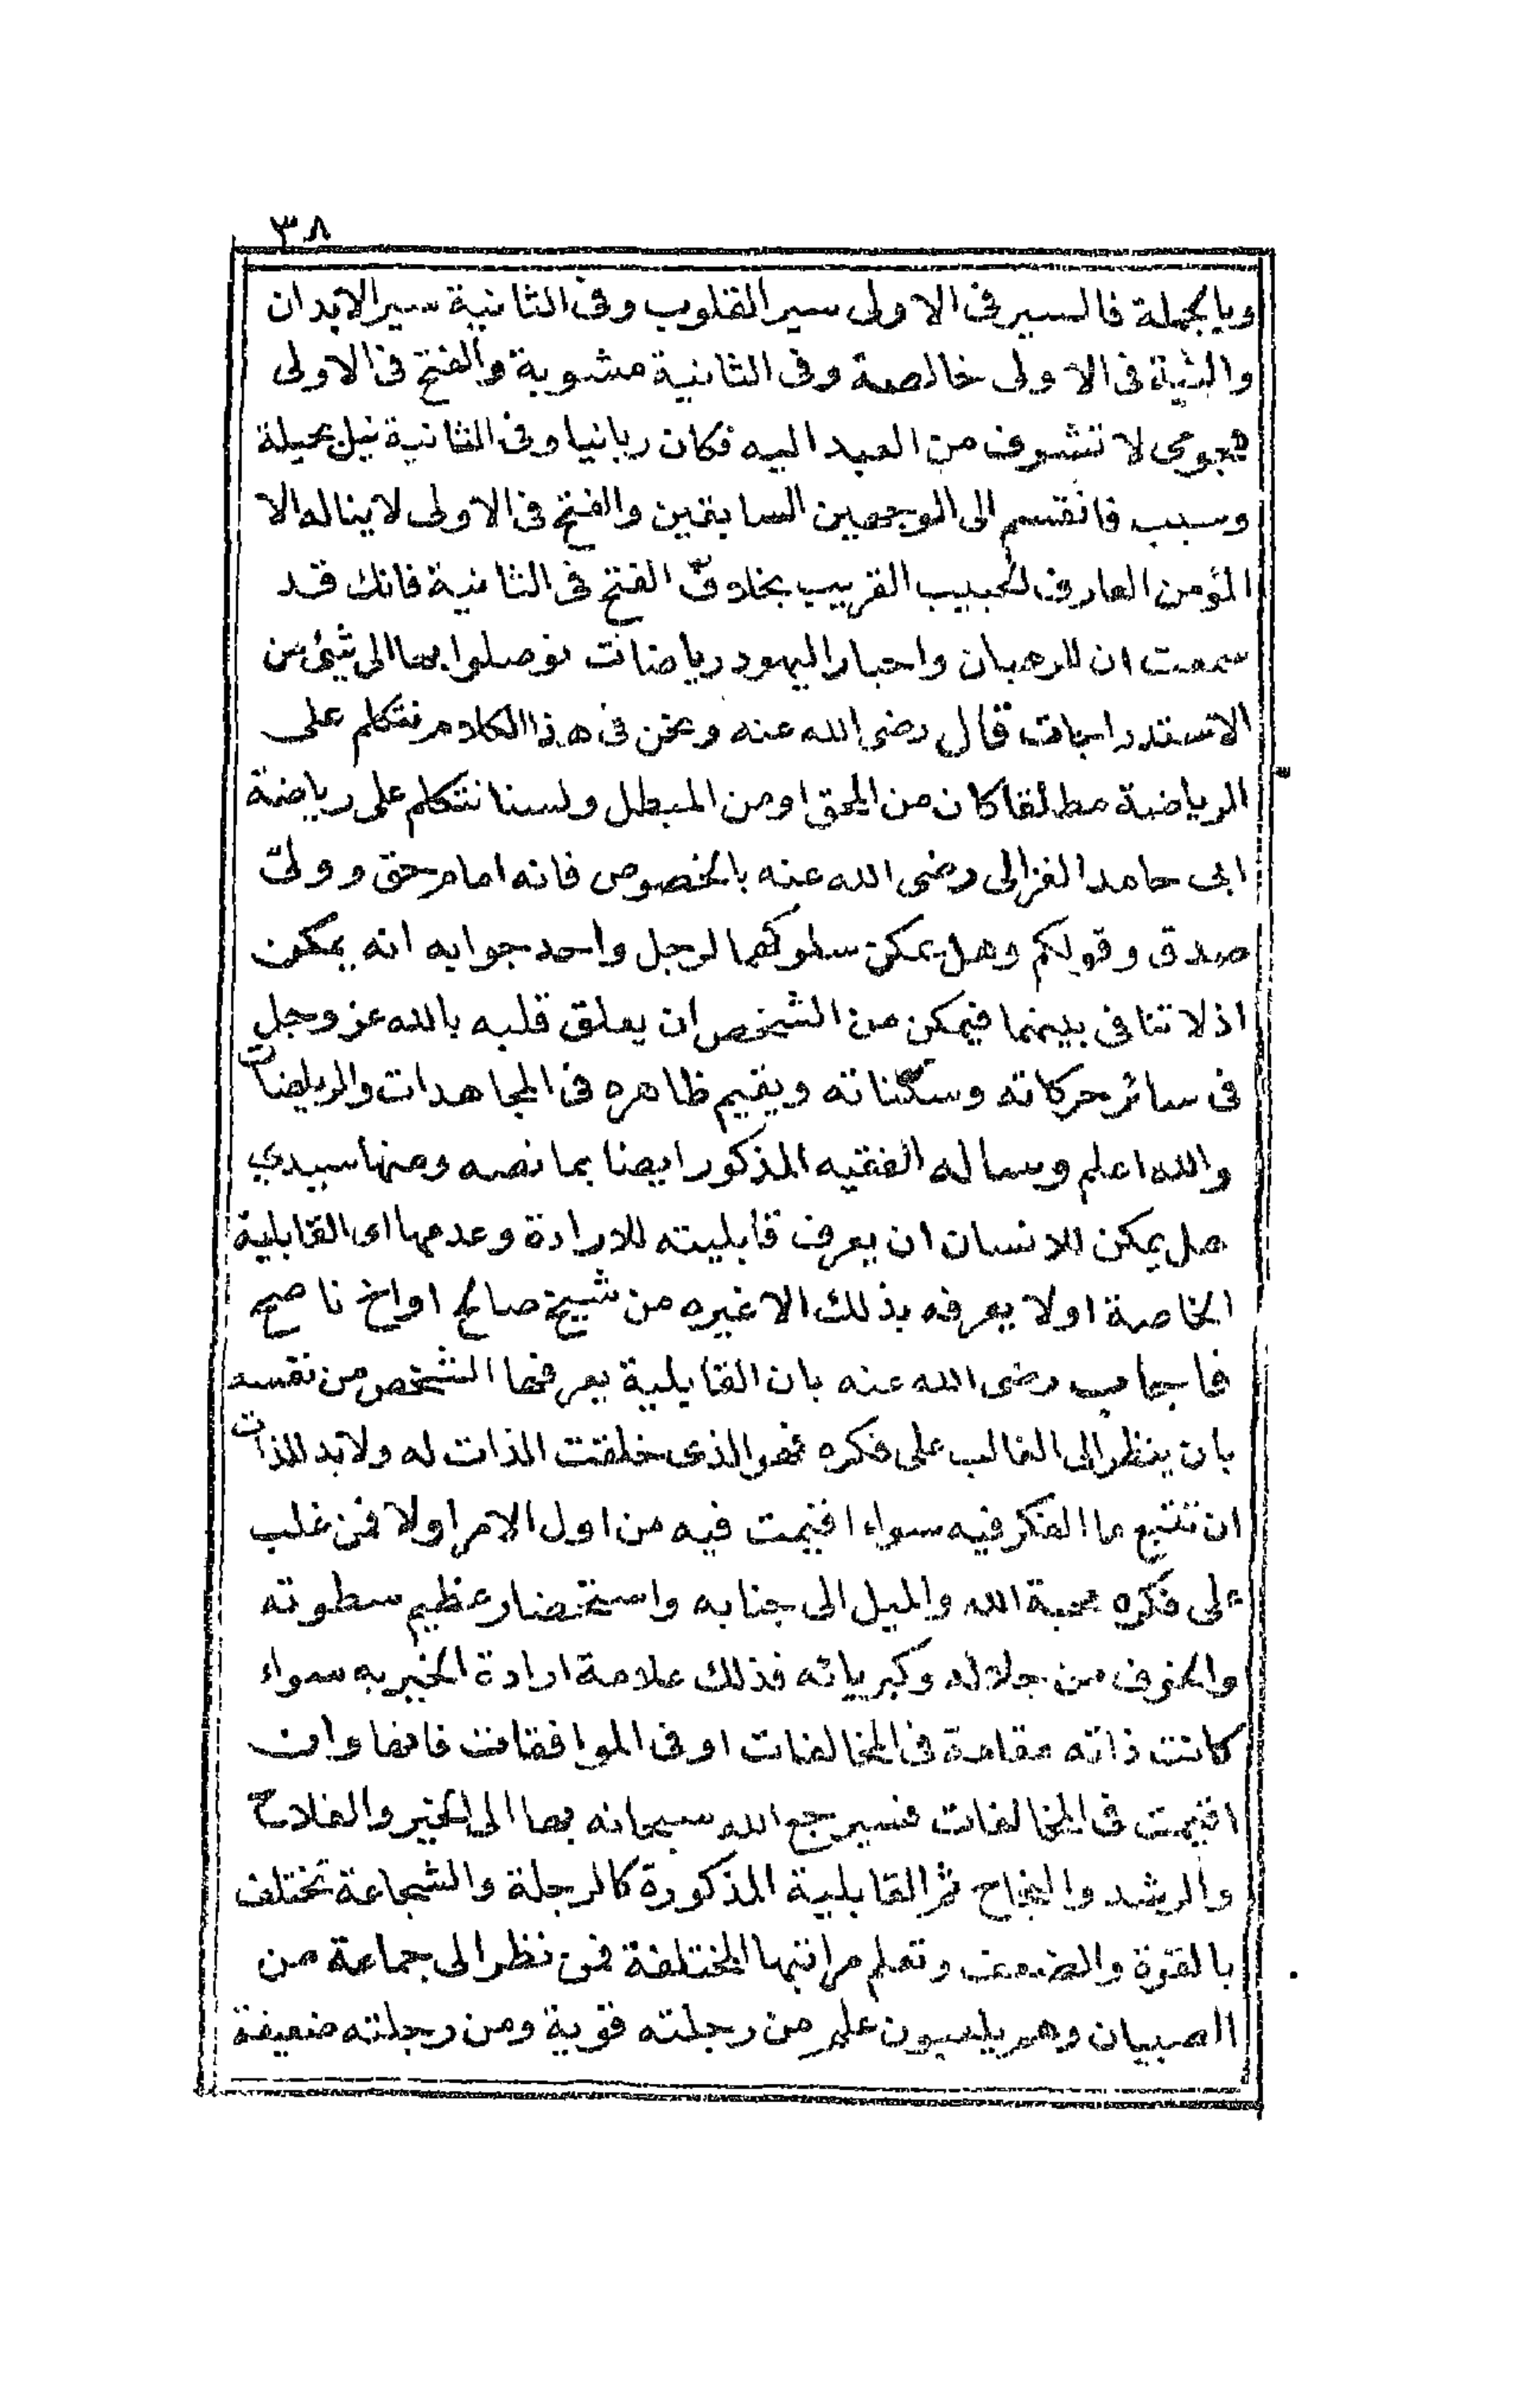 ٣٨
وبالجملة فالسير فى الاولى سير القلوب وفى الثانية سير الابدان
والنية فى الاولى خالصة وفى الثانية مشوبة والفتح فى الاولى
هجومى لا تشوف من العبد اليه فكان ربانيا وفى الثانية نيل بحيلة
وسبب فانقسم الى الوجهين السابقين والفتح فى الاولى لا يناله الا
المؤمن العارف الحبيب القريب بخلاف الفتح فى الثانية فانك قد
سمعت ان للرهبان واحبار اليهود رياضات توصلوا بها الى شيئ من
الاستدراجات قال رضى الله عنه ونحن فى هذا الكلام نتكلم على
الرياضة مطلقا كان من المحق او من المبطل ولسنا نتكلم على رياضة
ابى حامد الغزالى رضى الله عنه بالخصوص فانه امام حق وولىّ
صدق وقولكم وهل يمكن سلوكهما لرجل واحد جوابه انه يمكن
اذ لا تنافى بينهما فيمكن من الشخص ان يعلق قلبه بالله عز وجل
فى سائر حركاته وسكناته ويقيم ظاهره فى المجاهدات والرياضات
والله اعلم وساله الفقيه المذكور ايضا بما نصه ومنها سيدي
هل يمكن للانسان ان يعرف قابليته للارادة وعدمها اى القابلية
الخاصة او لا يعرفه بذلك الا غيره من شيخ صالح او اخ ناصح
فاجاب رضى الله عنه بان القابلية يعرفها الشخص من نفسه
بان ينظر الى الغالب على فكره فهو الذى خلقت الذات له ولا بد للذات
ان تتبع ما الفكر فيه سواء اقيمت فيه من اول الامر او لا فمن غلب
على فكره محبة الله والميل الى جنابه واستحضار عظيم سطوته
والخوف من جلاله وكبريائه فذلك علامة ارادة الخير به سواء
كانت ذاته مقامة فى المخالفات او فى الموافقات فانها وان
اقيمت فى المخالفات فسيرجع الله سبحانه بها الى الخير والفلاح
والرشد والنجاح ثم القابلية المذكورة كالرجلة والشجاعة تختلف
بالقوة والضعف وتعلم مراتبها المختلفة فمن نظر الى جماعة من
الصبيان وهم يلعبون علم من رجلته قوية ومن رجلته ضعيفة